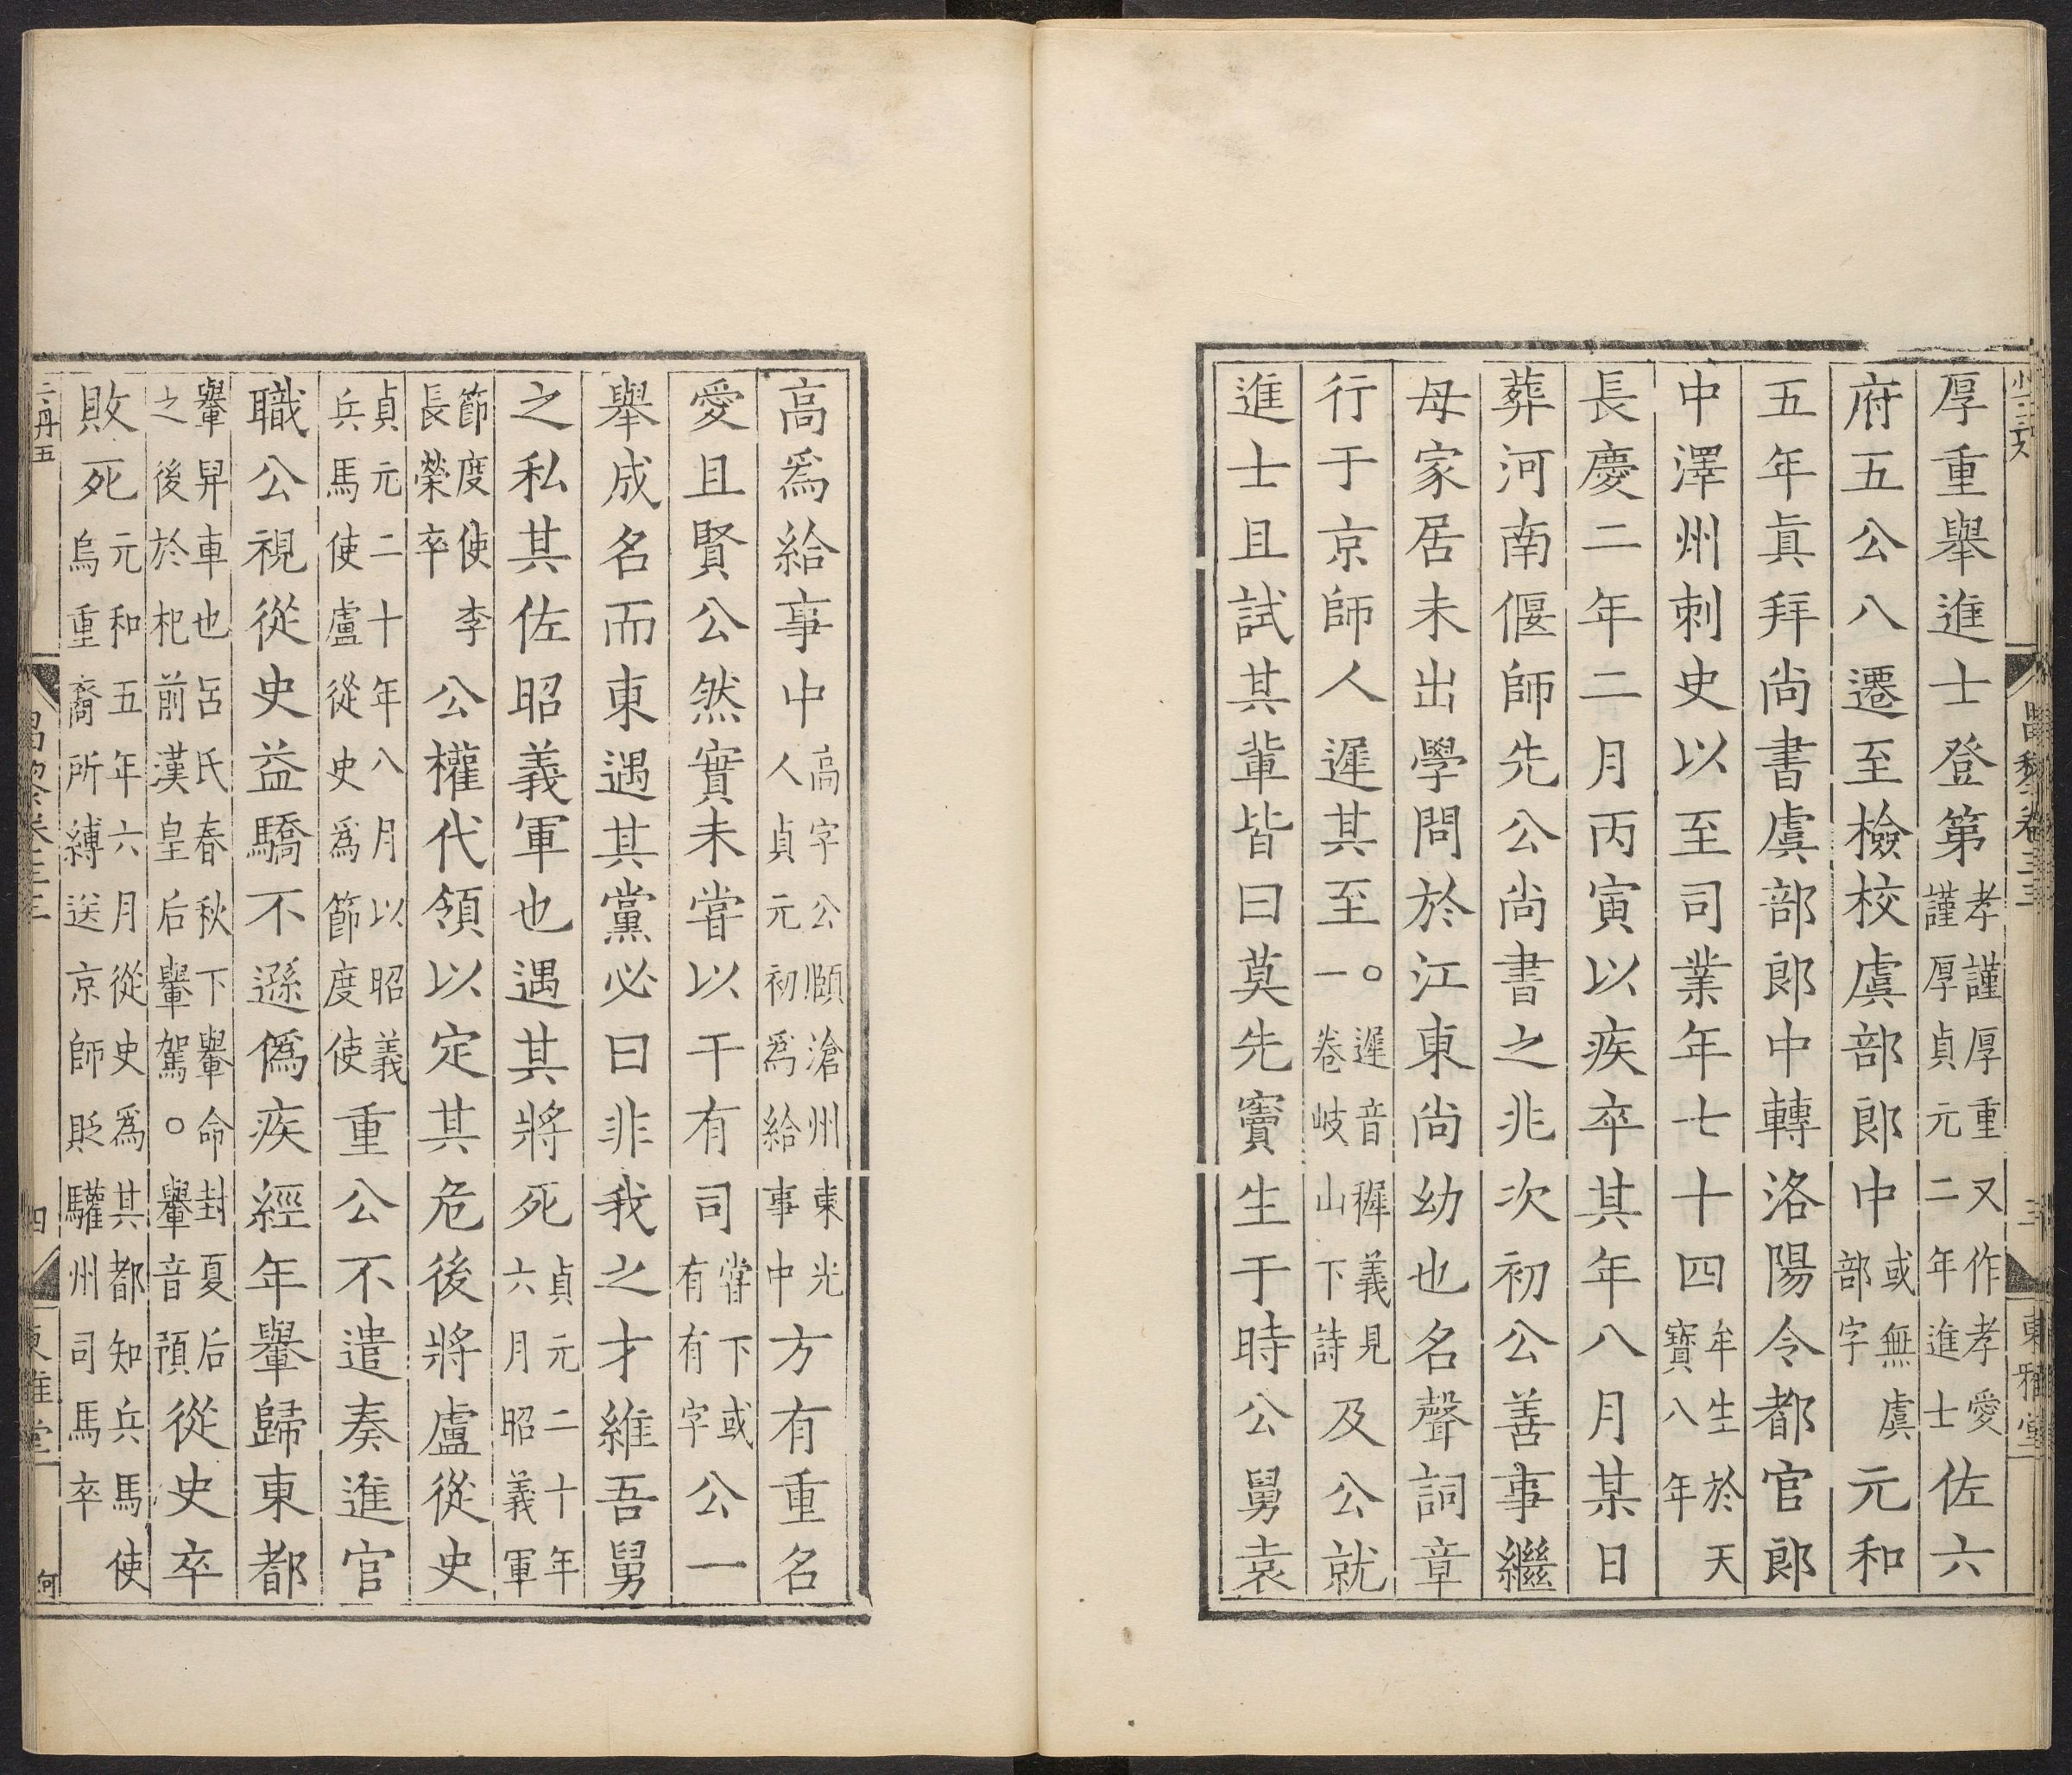 厚重舉進士登第孝謹厚重又作孝愛謹厚貞元二年進士佐六
府五公八遷至檢校虞部郎中或無虞部字元和
五年眞拜尚書虞部郎中轉洛陽令都官郎
中澤州刺史以至司業年七十四牟生於天寶八年
長慶二年二月丙寅以疾卒其年八月某日
葬河南偃師先公尚書之兆次初公善事繼
母家居未出學問於江東尚幼也名聲詞章
行于京師人遲其至一○遲音穉義見卷岐山下詩及公就
進士且試其輩皆曰莫先竇生于時公舅袁
高爲給事中高字公頤滄州東光人貞元初爲給事中方有重名
愛且賢公然實未嘗以干有司嘗下或有有字公一
舉成名而東遇其黨必曰非我之才維吾舅
之私其佐昭義軍也遇其將死貞元二十年六月昭義軍
節度使李長榮卒公權代領以定其危後將盧從史
貞元二十年八月以昭義兵馬使盧從史爲節度使重公不遣奏進官
職公視從史益驕不遜僞疾經年轝歸東都
轝舁車也呂氏春秋下轝命封夏后之後於杞前漢皇后轝駕○轝音預從史卒
敗死元和五年六月從史爲其都知兵馬使烏重裔所縛送京師貶驩州司馬卒
四
東雅堂